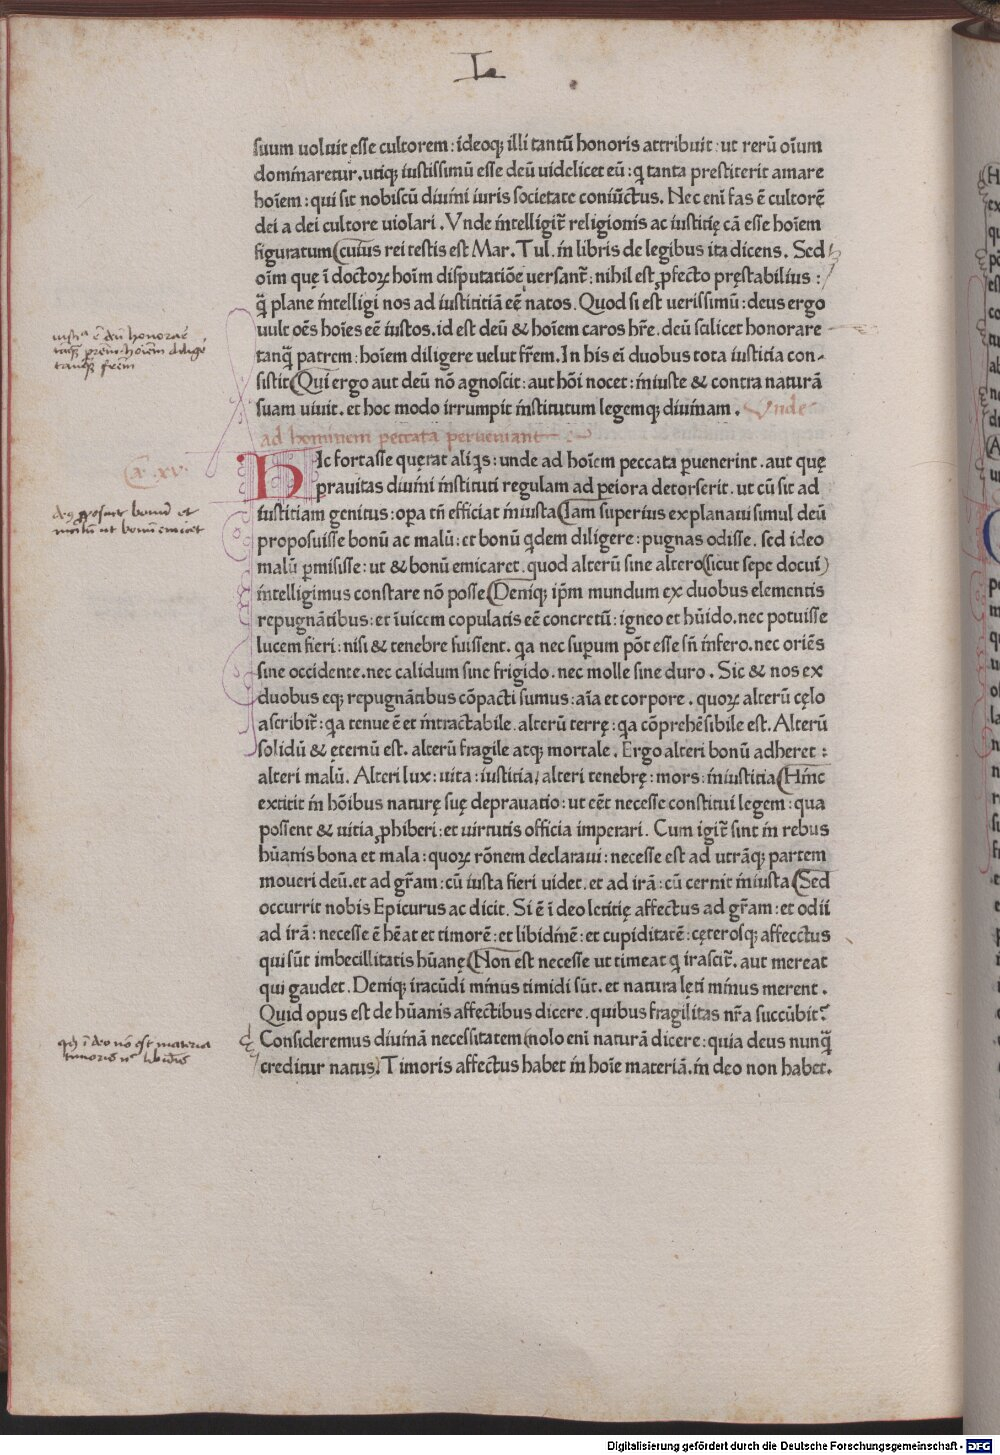 suum uoluit esse cultorem : ideoq; illi tantū honoris attribuit : ut rerū oīum
dominaretur . utiq; iustissimū esse deū uidelicet eū : q̇ tanta prestiterit amare
hoīem : qui sit nobiscū diuini iuris societate coniūctus . Nec enī fas ē cultorē
dei a dei cultore uiolari . Vnde intelligit̄ religionis ac iustitię cā esse hoīem
figuratum (cuius rei testis est Mar . Tul . in libris de legibus ita dicens . Sed
oīm quę ī doctoꝝ hoīm disputatiōe uersant̄ : nihil est ꝓfecto pręstabilius :
q̄ plane intelligi nos ad iustititiā eē natos . Quod si est uerissimū : deus ergo
uult oēs hoīes eē iustos . id est deū & hoīem caros hr̄e . deū scilicet honorare
iusti^a ē deū honorare
tanq̄ patrem : hoīem diligere uelut fr̄em . In his eī duobus tota iustitia con-
tanq̄ prēm : hoīem dilige
sistit (Qui ergo aut deū nō agnoscit : aut hōi nocet : iniuste & contra naturā
tanq̄ frēm
suam uiuit . et hoc modo irrumpit institutum legemq; diuinam . Vnde
ad hominem peccata perueniant
Hic fortasse quęrat aliq̇s : unde ad hoīem peccata puenerint . aut quę
Ca . xv .
prauitas diuini instituti regulam ad peiora detorserit . ut cū sit ad
iustitiam genitus : opa tn̄ efficiat iniusta (Iam superius explanaui simul deū
proposuisse bonū ac malū : et bonū q̇dem diligere : pugnas odisse . sed ideo
malū ut bonū emicet
malū pmisisse : ut & bonū emicaret . quod alterū sine altero (sicut sepe docui)
intelligimus constare nō posse (Deniq; ip̄m mundum ex duobus elementis
repugnātibus : et īuicem copulatis eē concretū : igneo et hūido . nec potuisse
lucem fieri : nisi & tenebre fuissent . q̇a nec supum pōt esse sn̄ infero . nec oriēs
sine occidente . nec calidum sine frigido . nec molle sine duro . Sic & nos ex
duobus eq; repugnātibus cōpacti sumus : aīa et corpore . quoꝝ alterū cęlo
ascribit̄ : q̇a tenue ē et intractabile . alterū terrę : q̇a cōprehēsibile est . Alterū
solidū & ęternū est . alterū fragile atq; mortale . Ergo alteri bonū adheret :
alteri malū . Alteri lux : uita : iustitia / alteri tenebrę : mors : iniustitia (Hinc
extitit in hōibus naturę suę deprauatio : ut cēt necesse constitui legem : qua
possent & uitia ꝓhiberi : et uirtutis officia imperari . Cum igit̄ sint in rebus
hūanis bona et mala : quoꝝ rōnem declaraui : necesse est ad utrāq; partem
moueri deū . et ad gr̄am : cū iusta fieri uidet . et ad irā : cū cernit iniusta (Sed
occurrit nobis Epicurus ac dicit . Si ē ī deo letitię affectus ad gr̄am : et odii
ad irā : necesse ē hēat et timorē : et libidinē : et cupiditatē : cęterosq; affecctus
qui sūt imbecillitatis hūanę (Non est necesse ut timeat q̇ irascit̄ . aut mereat
qui gaudet . Deniq; iracūdi minus timidi sūt . et natura lęti minus merent .
Quid opus est de hūanis affectibus dicere . quibus fragilitas nr̄a succūbit ?
Consideremus diuinā necessitatem (nolo enī naturā dicere : quia deus nunq̄
q̇ ī deo nō est materia
timoris nec libidīs
creditur natus) Timoris affectus habet in hoīe materiā . in deo non habet .
Digitalisierung gefördert durch die Deutsche Forschungsgemeinschaft - DFG